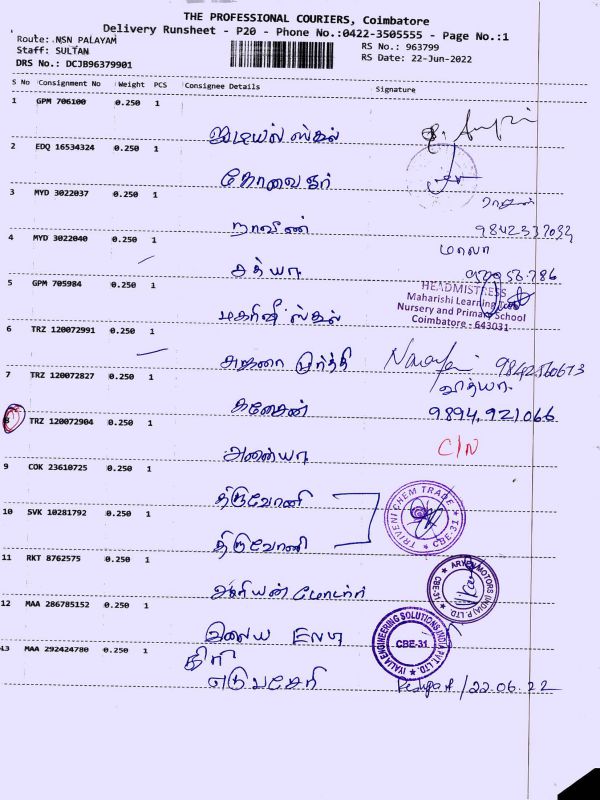 THE PROFESSIONAL COURIERS, Coimbatore
Delivery Runsheet - P20 - Phone No.:0422-3505555 - Page No.:1
Route: NSN PALAYAM
Staff: SULTAN
DRS No.: DCJB96379901
RS No.: 963799
RS Date: 22-Jun-2022
S No Consignment No Weight PCS Consignee Details Signature
1 GPM 706100 0.250 1
2 EDQ 16534324 0.250 1
கோவை
3 MYD 3022037 0.250 1
நாவீண் 9842337032
4 MYD 3022040 0.250 1 மாலா
சத்யா
5 GPM 705984 0.250 1
HEADMISTRESS
Maharishi Learning
Nursery and Primary School
Coimbatore - 641031
மகரிஷி ஸ்கூல்
6 TRZ 120072991 0.250 1
மூர்த்தி 9842560673
7 TRZ 120072827 0.250 1 வித்யா
கணேசன் 9894,921066
8 TRZ 120072904 0.250 1 C/N
அனன்யா
9 COK 23610725 0.250 1
திருவோணி
TRIVENI CHEM TRADE
CBE-31
10 SVK 10281792 0.250 1
திருவோணி
11 RKT 8762575 0.250 1
ஆரியன் மோட்டார்
ARYAN MOTORS (INDIA) P. LTD.
CBE-31
12 MAA 286785152 0.250 1
IYALIA ENGINEERING SOLUTIONS INDIA PVT. LTD.
CBE-31
13 MAA 292424780 0.250 1
கிரி
22.06.22